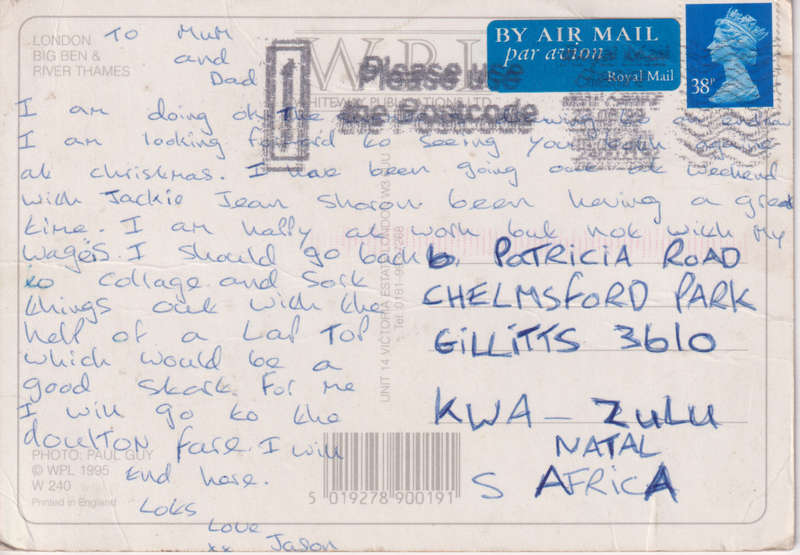 LONDON
BIG BEN &
RIVER THAMES
TO MUM
and
Dad
BY AIR MAIL
par avion
Royal Mail
38P
Please use
the Postcode
I am doing ok
I am looking forward to seeing you
at christmas. I have been going out at weekend
with Jackie Jean Sharon been having a great
time. I am hally at work but not with my
wages. I should go back
to collage and Sort
things out with the
help of a Lap Top
which would be a
good start for me
I will go to the
doulton fare. I will
End here.
Loks
Love
xx Jason
6 PATRICIA ROAD
CHELMSFORD PARK
GILLITTS 3610
KWA - ZULU
NATAL
S AFRICA
UNIT 14 VICTORIA ESTATE LONDON W3
Tel: 0181-99
PHOTO: PAUL GUY
© WPL 1995
W 240
Printed in England
5 019278 900191